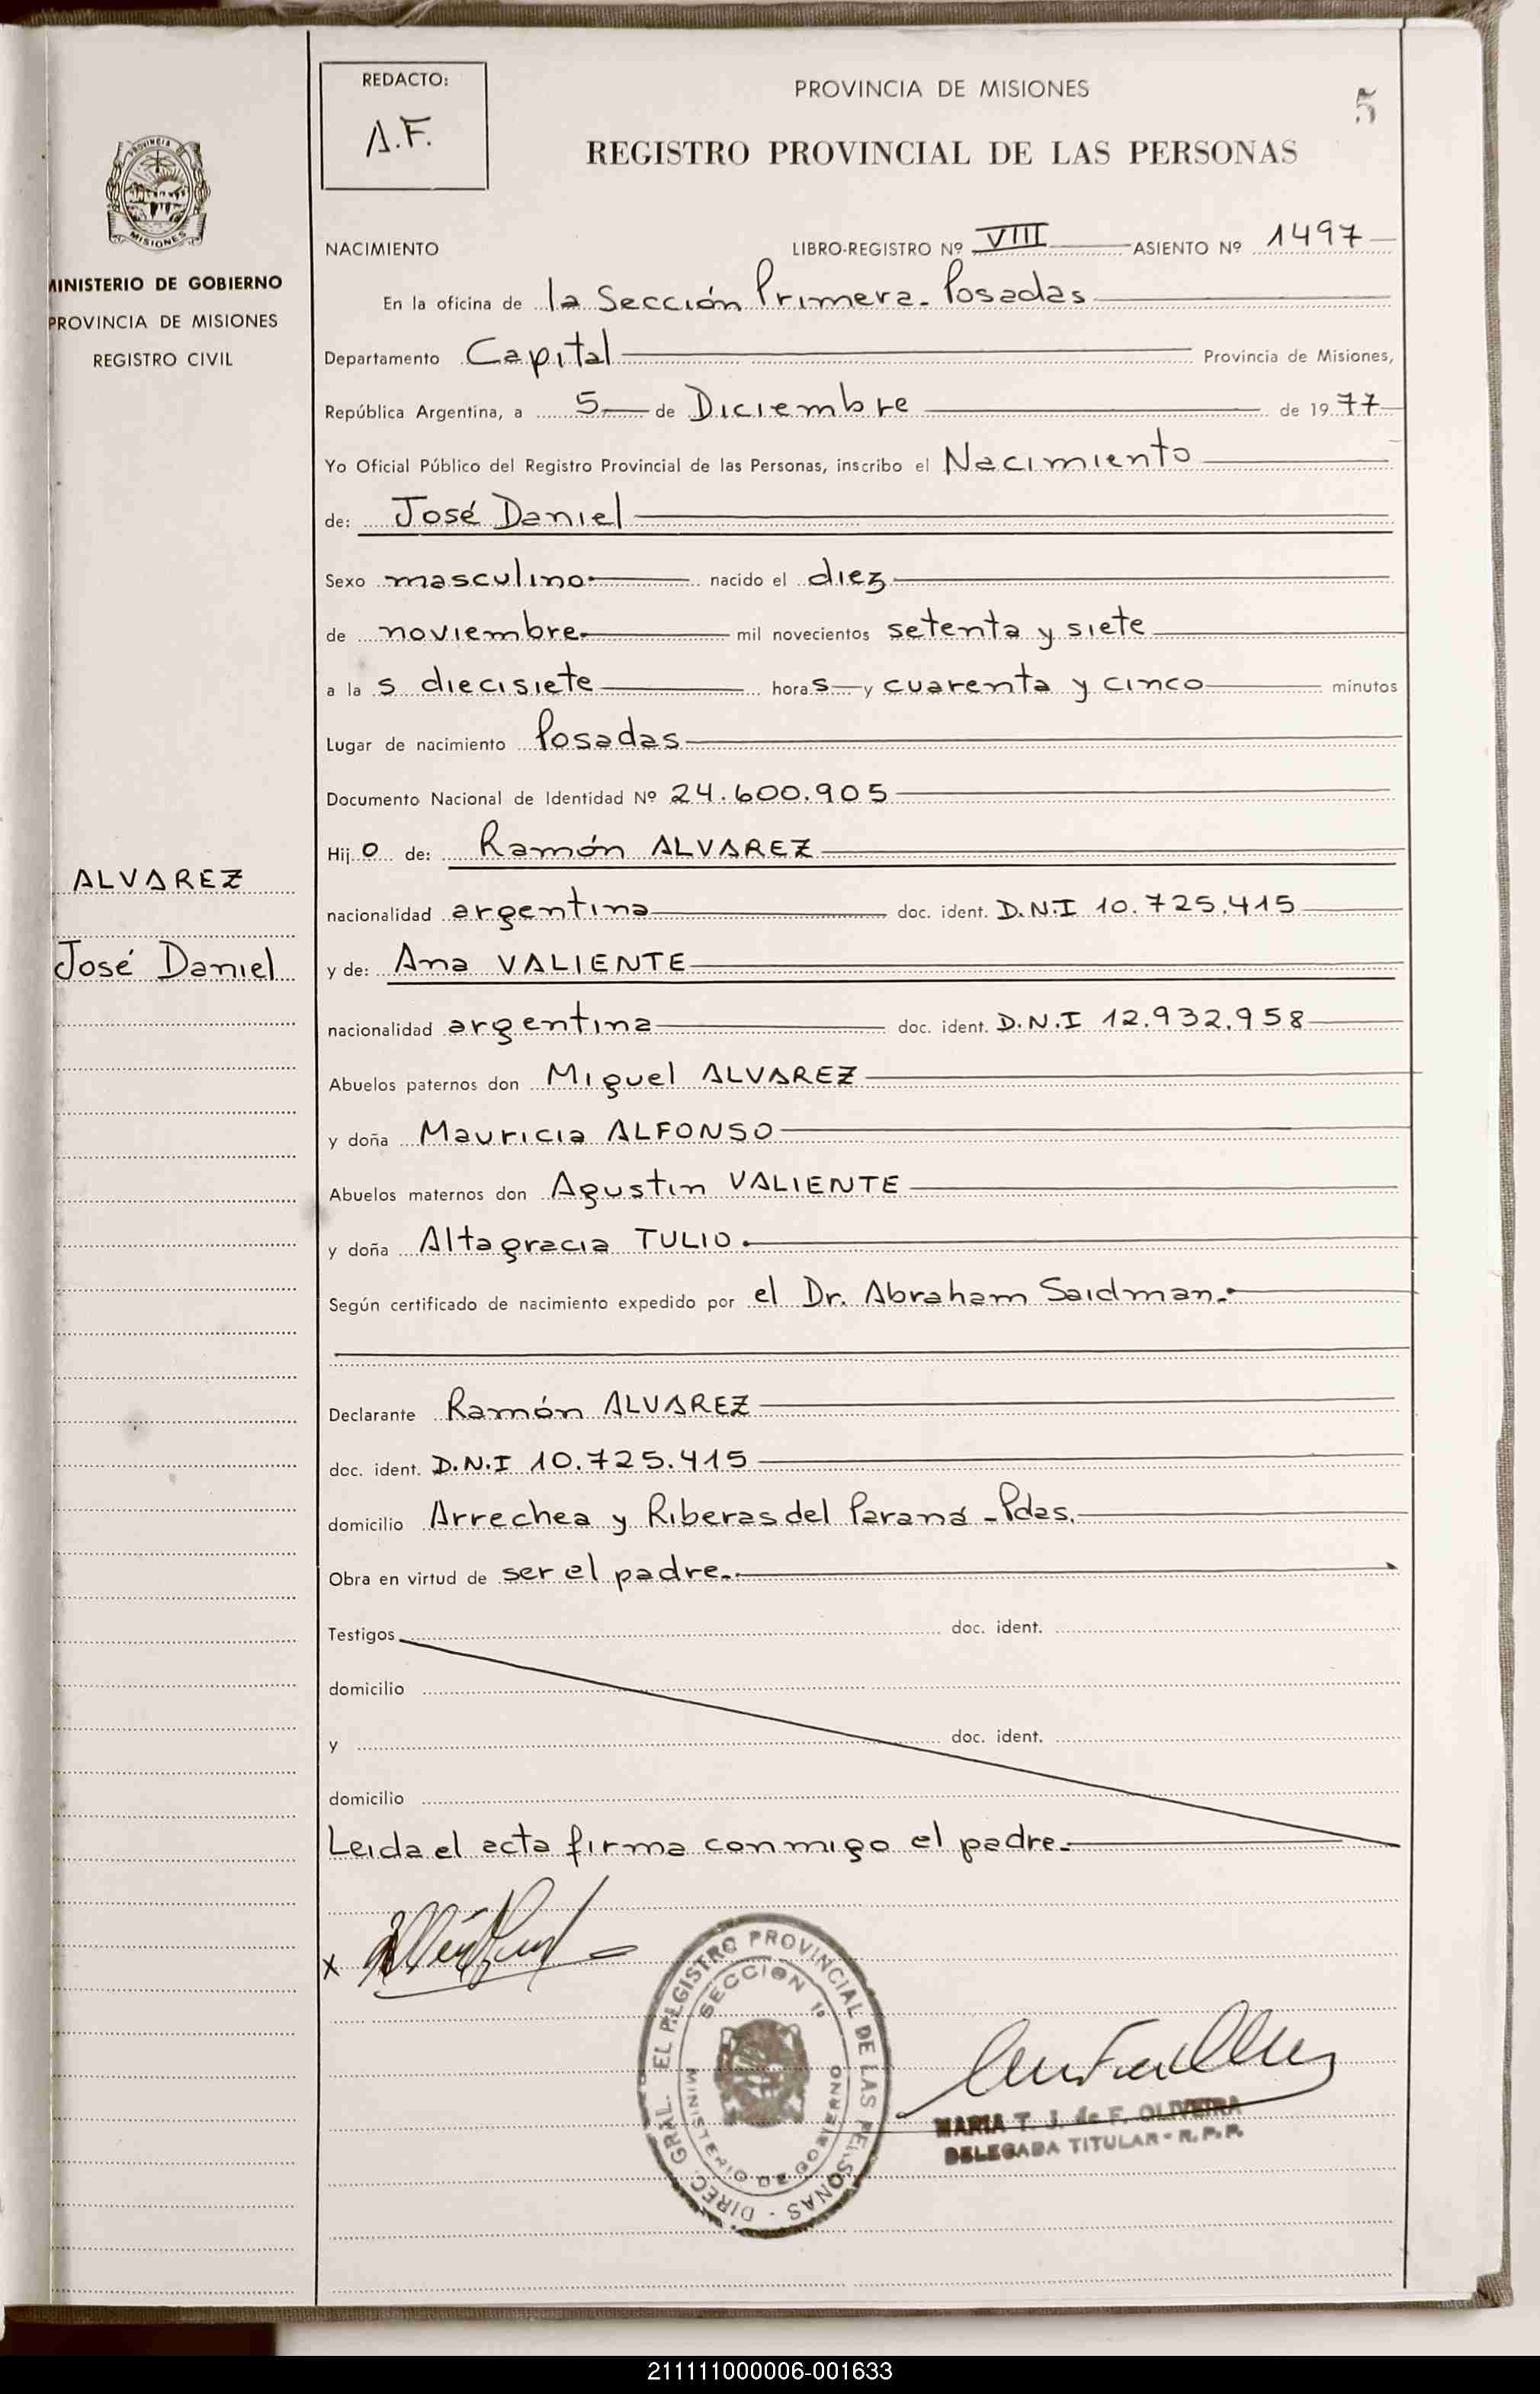 REDACTO:
A.F.
PROVINCIA DE MISIONES
5
REGISTRO PROVINCIAL DE LAS PERSONAS
PROVINCIA
MISIONES
MINISTERIO DE GOBIERNO
PROVINCIA DE MISIONES
REGISTRO CIVIL
NACIMIENTO LIBRO-REGISTRO Nº VIII ASIENTO Nº 1497
En la oficina de la Sección Primera - Posadas
Departamento Capital Provincia de Misiones,
República Argentina, a 5 de Diciembre de 1977
Yo Oficial Público del Registro Provincial de las Personas, inscribo el Nacimiento
de: José Daniel
Sexo masculino nacido el diez
de noviembre mil novecientos setenta y siete
a la s diecisiete hora s y cuarenta y cinco minutos
Lugar de nacimiento Posadas
Documento Nacional de Identidad Nº 24.600.905
Hij o de: Ramón ALVAREZ
ALVAREZ
nacionalidad argentina doc. ident. D.N.I 10.725.415
José Daniel
y de: Ana VALIENTE
nacionalidad argentina doc. ident. D.N.I 12.932.958
Abuelos paternos don Miguel ALVAREZ
y doña Mauricia ALFONSO
Abuelos maternos don Agustin VALIENTE
y doña Altagracia TULIO.
Según certificado de nacimiento expedido por el Dr. Abraham Saidman.-
Declarante Ramón ALVAREZ
doc. ident. D.N.I 10.725.415
domicilio Arrechea y Riberas del Paraná - Pdas.
Obra en virtud de ser el padre.-
Testigos doc. ident.
domicilio
y doc. ident.
domicilio
Leida el acta firma conmigo el padre.-
x
DIREC. GRAL. EL REGISTRO PROVINCIAL DE LAS PERSONAS -
SECCION 1º
MINISTERIO DE GOBIERNO
MARIA T. J. de F. OLIVEIRA
DELEGADA TITULAR - R.P.P.
211111000006-001633